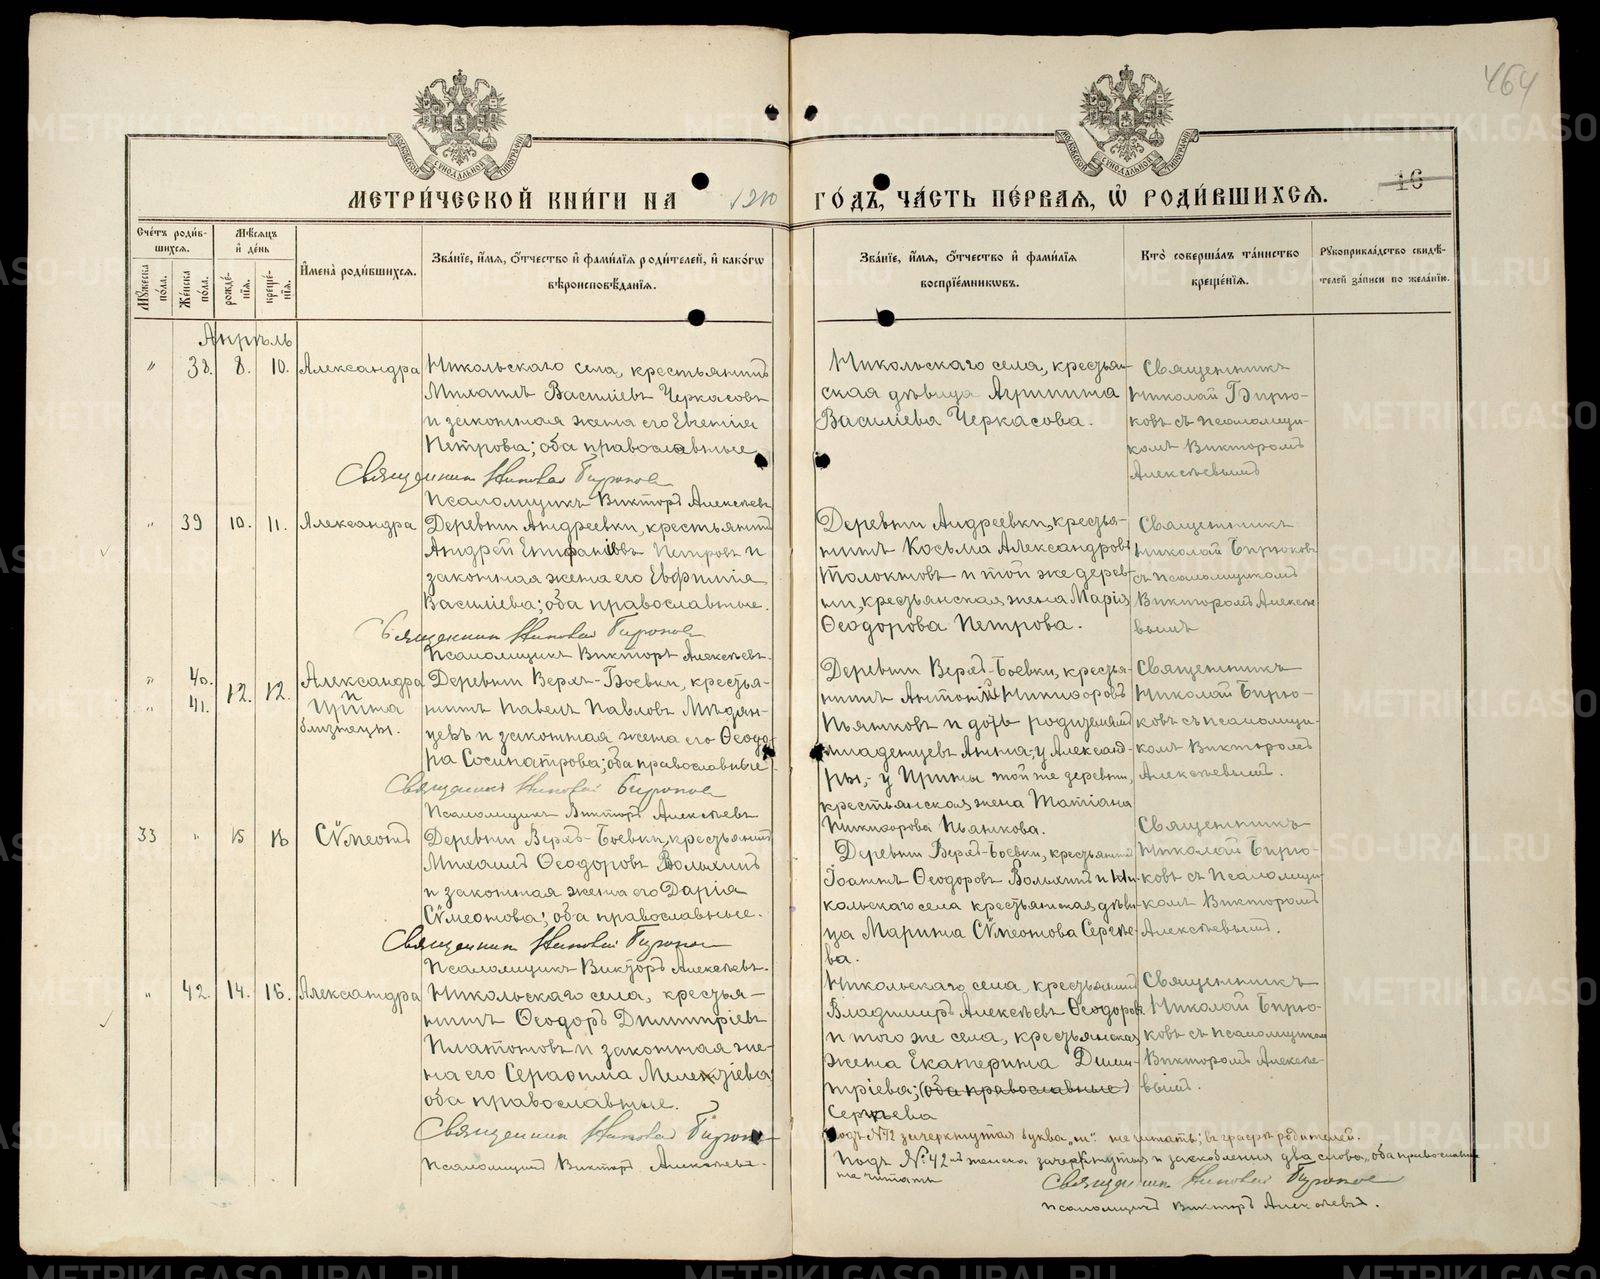 464
МЕТРИ́ЧЕСКОЙ КНИ́ГИ НА 1910 ГО́ДЪ, ЧА́СТЬ ПЕ́РВАЯ, Ѡ РОДИ́ВШИХСЯ.
16
Сче́тъ роди́вшихся.
Му́жеска по́ла.
Же́нска по́ла.
Мѣ́сяцъ и де́нь
рожде́нїя.
креще́нїя.
И҆мена̀ роди́вшихся.
Зва́нїе, и҆́мя, ѻ҆́тчество и҆ фами́лїя роди́телей, и҆ како́гѡ вѣроисповѣ́данїя.
Зва́нїе, и҆́мя, ѻ҆́тчество и҆ фами́лїя воспрїе́мникѡвъ.
Кто̀ соверша́лъ та́инство креще́нїя.
Рꙋкоприкла́дство свидѣ́телей за́писи по жела́нїю.
Апрѣль
" 38. 8. 10. Александра
Никольскаго села, крестьянинъ
Михаилъ Василіевъ Черкасовъ
и законная жена его Евгенія
Петрова; оба православные
Священникъ Николай Бирюковъ
Псаломщикъ Викторъ Алексѣевъ
Никольскаго села, крестьян-
ская дѣвица Агриппина
Василіева Черкасова.
Священникъ
Николай Бирю-
ковъ съ псаломщи-
комъ Викторомъ
Алексѣевымъ
" 39 10. 11. Александра
Деревни Андреевки, крестьянинъ
Андрей Епифаніевъ Петровъ и
законная жена его Евфимія
Василіева; оба православные.
Священникъ Николай Бирюковъ
Псаломщикъ Викторъ Алексѣевъ.
Деревни Андреевки, крестья-
нинъ Косьма Александровъ
Толокновъ и той же дерев-
ни, крестьянская жена Марія
Ѳеодорова Петрова.
Священникъ
Николай Бирюковъ
съ псаломщикомъ
Викторомъ Алексѣе-
вымъ
" 40. " 41. 12. 12. Александра
и
Ирина
близнецы.
Деревни Верхъ-Боевки, крестья-
нинъ Павелъ Павловъ Мѣдян-
цевъ и законная жена его Ѳеодо-
ра Сосипатрова; оба православные
Священникъ Николай Бирюковъ
Псаломщикъ Викторъ Алексѣевъ
Деревни Верхъ-Боевки, крестья-
нинъ Антоній Никифоровъ
Пьянковъ и дочь родителей
младенцевъ Анна,-у Александ-
ры,- у Ирины той же деревни,
крестьянская жена Татіана
Никифорова Пьянкова.
Священникъ
Николай Бирю-
ковъ съ псаломщи-
комъ Викторомъ
Алексѣевымъ.
33 " 15 16 Сѵмеонъ
Деревни Верхъ-Боевки, крестьянинъ
Михаилъ Ѳеодоровъ Волыхинъ
и законная жена его Дарія
Сѵмеонова; оба православные.
Священникъ Николай Бирюковъ
Псаломщикъ Викторъ Алексѣевъ.
Деревни Верхъ-Боевки, крестьянинъ
Іоаннъ Ѳеодоровъ Волыхинъ и Ни-
кольскаго села крестьянская дѣви-
ца Марина Сѵмеонова Сергѣе-
ва.
Священникъ
Николай Бирю-
ковъ съ Псаломщи-
комъ Викторомъ
Алексѣевымъ.
" 42. 14. 16. Александра
Никольскаго села, крестья-
нинъ Ѳеодоръ Димитріевъ
Платоновъ и законная же-
на его Серафима Мелентіева
оба православные.
Священникъ Николай Бирюковъ
Псаломщикъ Викторъ Алексѣевъ.
Никольскаго села, крестьянинъ
Владимиръ Алексѣевъ Ѳеодоровъ
и того же села, крестьянская
жена Екатерина Дими-
тріева; (оба православные)
Сергѣева
Священникъ
Николай Бирю-
ковъ съ псаломщикомъ
Викторомъ Алексѣе-
вымъ.
Подъ №42 зачеркнутая буква „н" не читать; въ графѣ родителей.
Подъ №42 женска зачеркнутыя и заскобленныя два слова „оба православные
не читать
Священникъ Николай Бирюковъ
Псаломщикъ Викторъ Алексѣевъ.